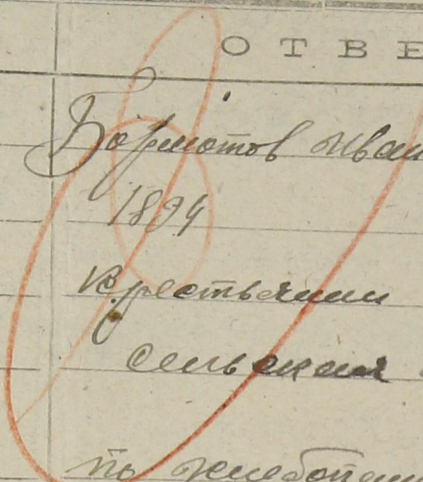 ОТВЕ
Бормотов Иван
1894
крестьянин
сельская